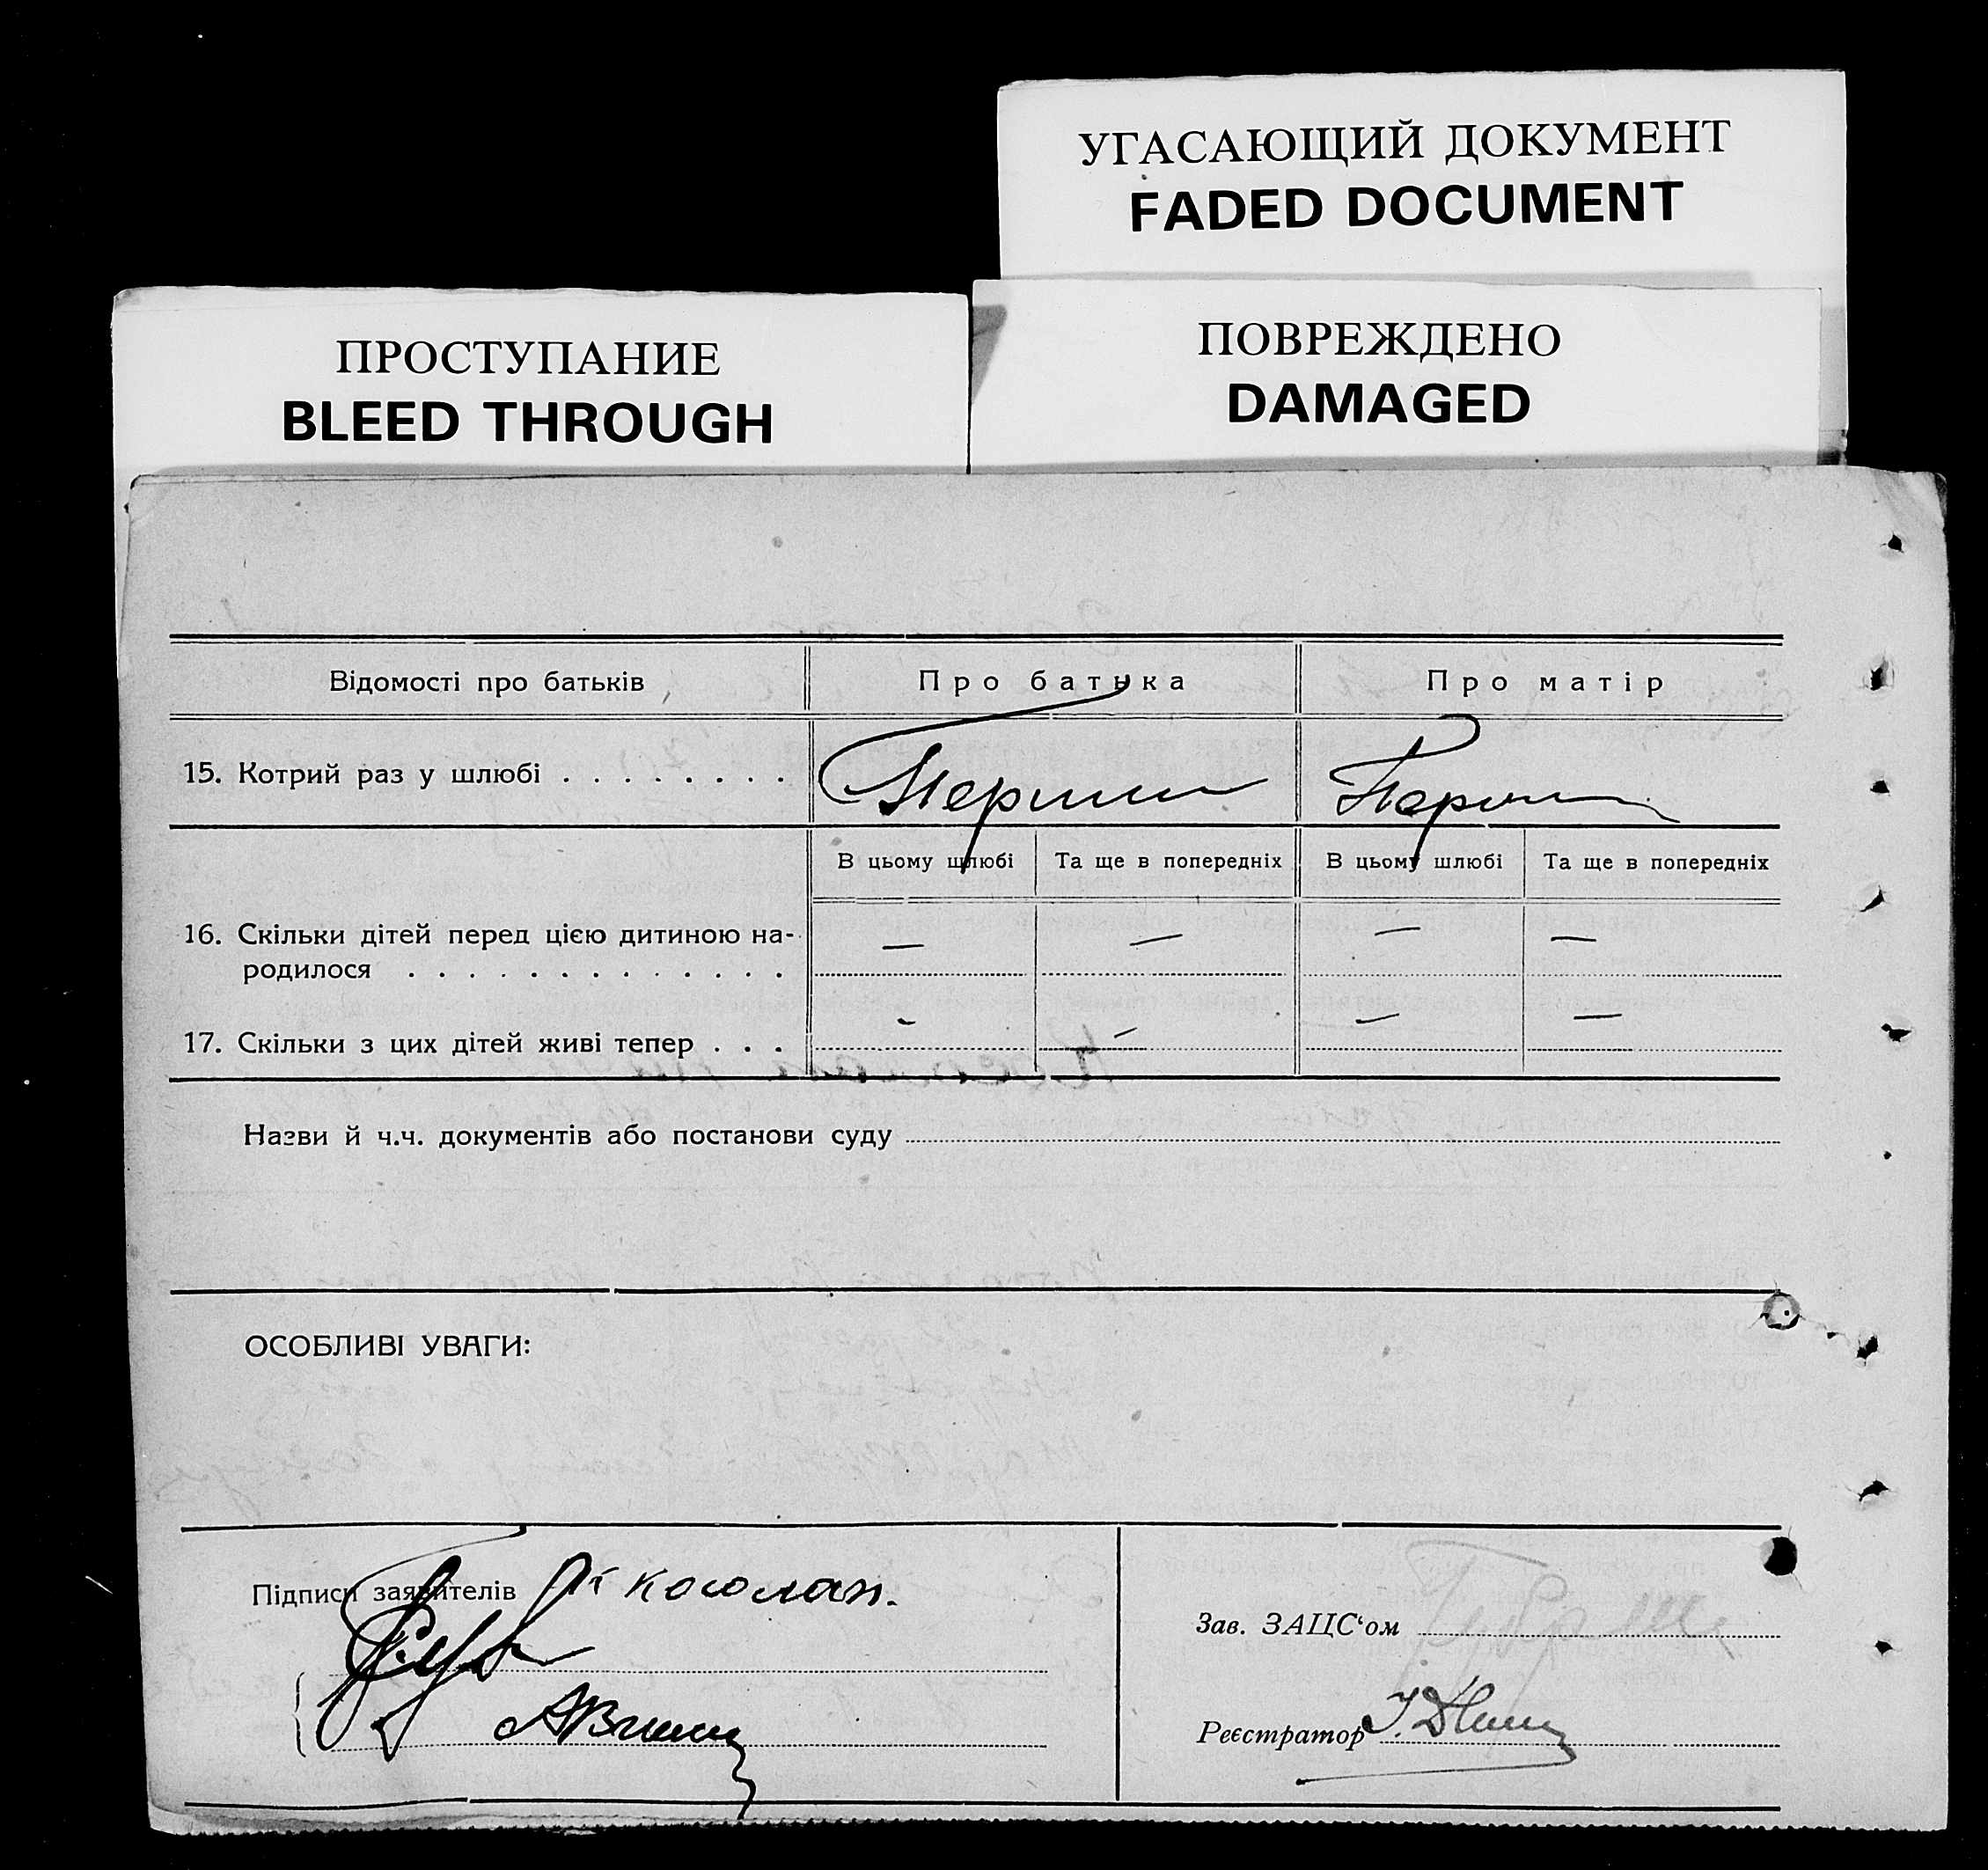 УГАСАЮЩИЙ ДОКУМЕНТ
FADED DOCUMENT
ПРОСТУПАНИЕ
BLEED THROUGH
ПОВРЕЖДЕНО
DAMAGED
Відомості про батьків
Про батька
Про матір
15. Котрий раз у шлюбі . . . . . . . .
В цьому шлюбі
Та ще в попередніх
В цьому шлюбі
Та ще в попередніх
16. Скільки дітей перед цією дитиною на-
родилося . . . . . . . . . . . . . .
— — — —
17. Скільки з цих дітей живі тепер . . .
- - — —
Назви й ч.ч. документів або постанови суду
ОСОБЛИВІ УВАГИ:
Підписи заявителів
Зав. ЗАЦС‘ом
Реєстратор